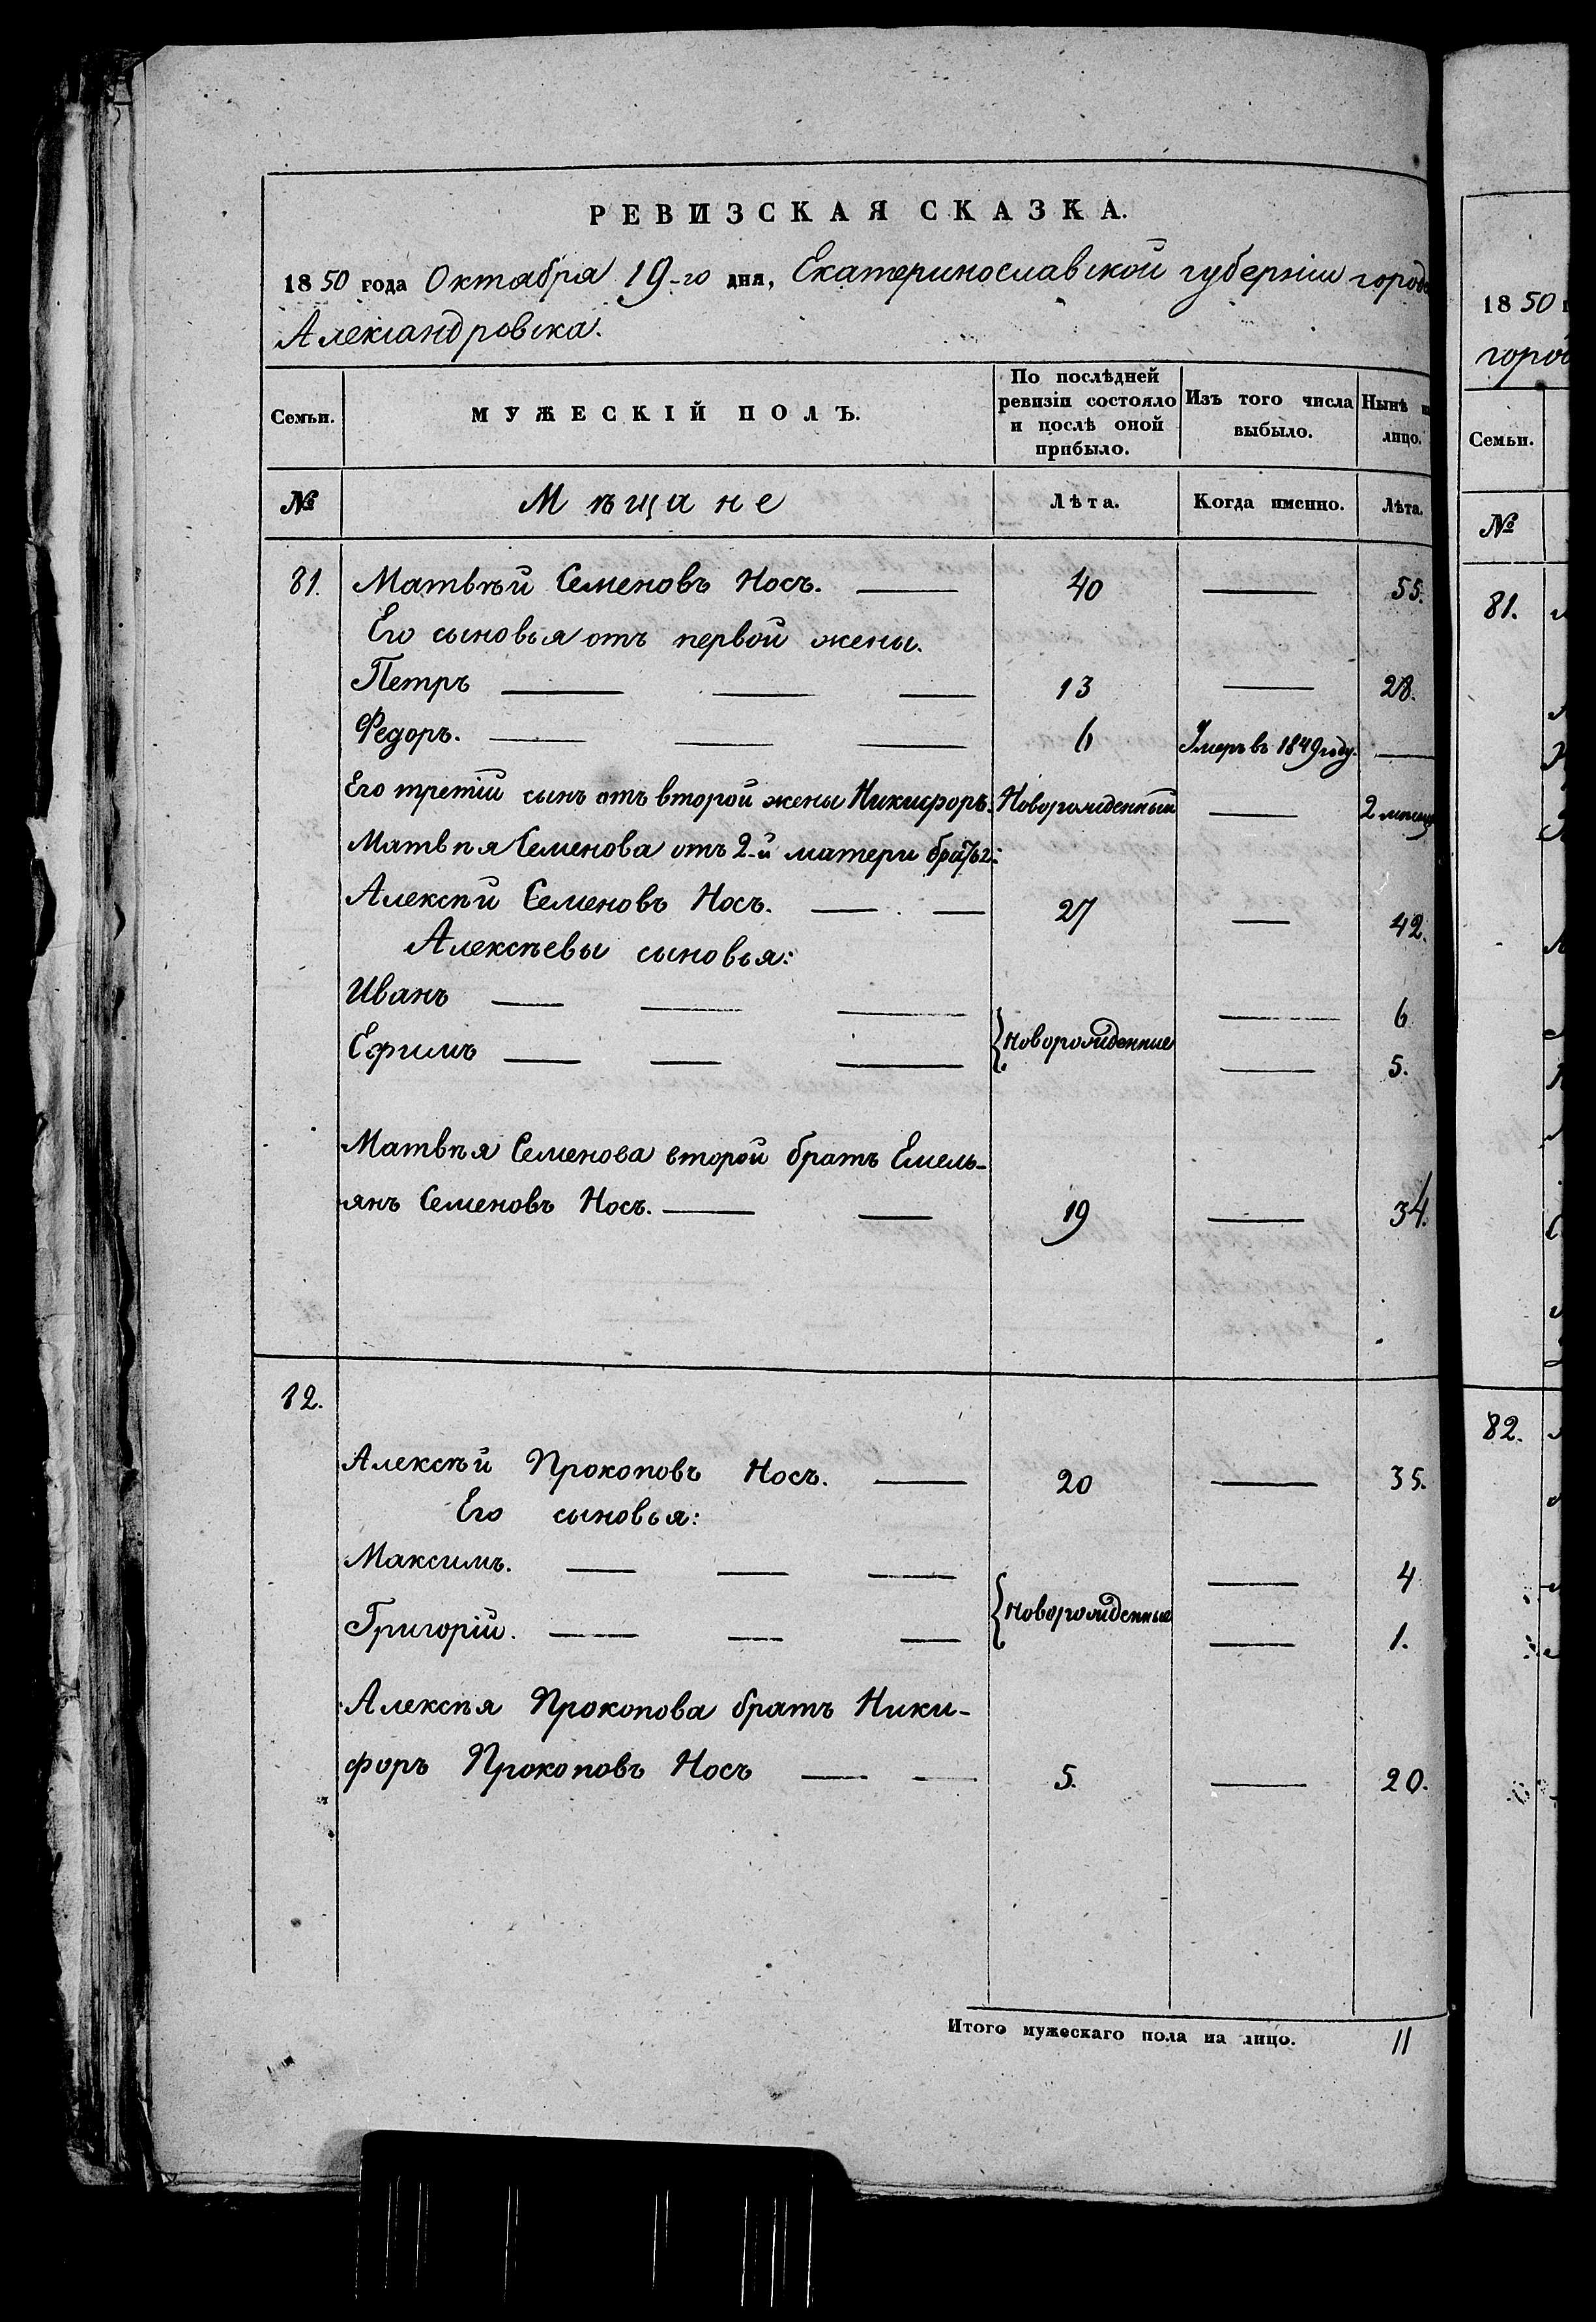 РЕВИЗСКАЯ СКАЗКА.
1850 года Октября 19-го дня, Екатеринославской губерніи города
Александровска.
Семьи.
МУЖЕСКІЙ ПОЛЪ.
По послѣдней
ревизіи состояло
и послѣ оной
прибыло.
Изъ того числа
выбыло.
Нынѣ
лицо.
№
Мѣщане
Лѣта.
Когда именно.
Лѣта.
81. Матвѣй Семеновъ Носъ. — 40 — 55.
Его сыновья отъ первой жены.
Петръ — — — 13 — 28.
Федоръ. — — — 6 Умеръ въ 1849 году. —
Его третій сынъ отъ второй жены Никифоръ. Новорожденный — 2 месяц
Матвѣя Семенова отъ 2-й матери братъ:
Алексѣй Семеновъ Носъ. — — 27 — 42.
Алексѣевы сыновья:
Иванъ — — — — 6
{Новорожденные
Ефимъ — — — — 5.
Матвѣя Семенова второй братъ Емель-
янъ Семеновъ Носъ. — — 19 — 34.
82.
Алексѣй Прокоповъ Носъ. — 20 — 35.
Его сыновья:
Максимъ. — — — — 4
{Новорожденные
Григорій. — — — — 1.
Алексѣя Прокопова братъ Ники-
форъ Прокоповъ Носъ — — 5. — 20.
Итого мужескаго пола на лицо. 11
1850
город
Семьи.
№
81.
82.